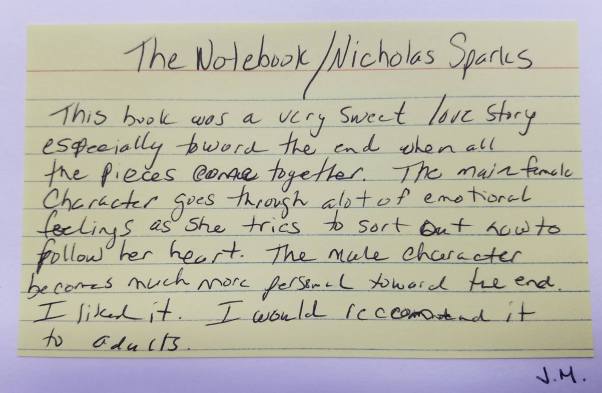 The Notebook/Nicholas Sparks
This book was a very sweet love story
especially toward the end when all
the pieces come together. The main female
Character goes through alot of emotional
feelings as she tries to sort out how to
follow her heart. The male character
becomes much more personal toward the end.
I liked it. I would reccomend it
to adults.
J.M.